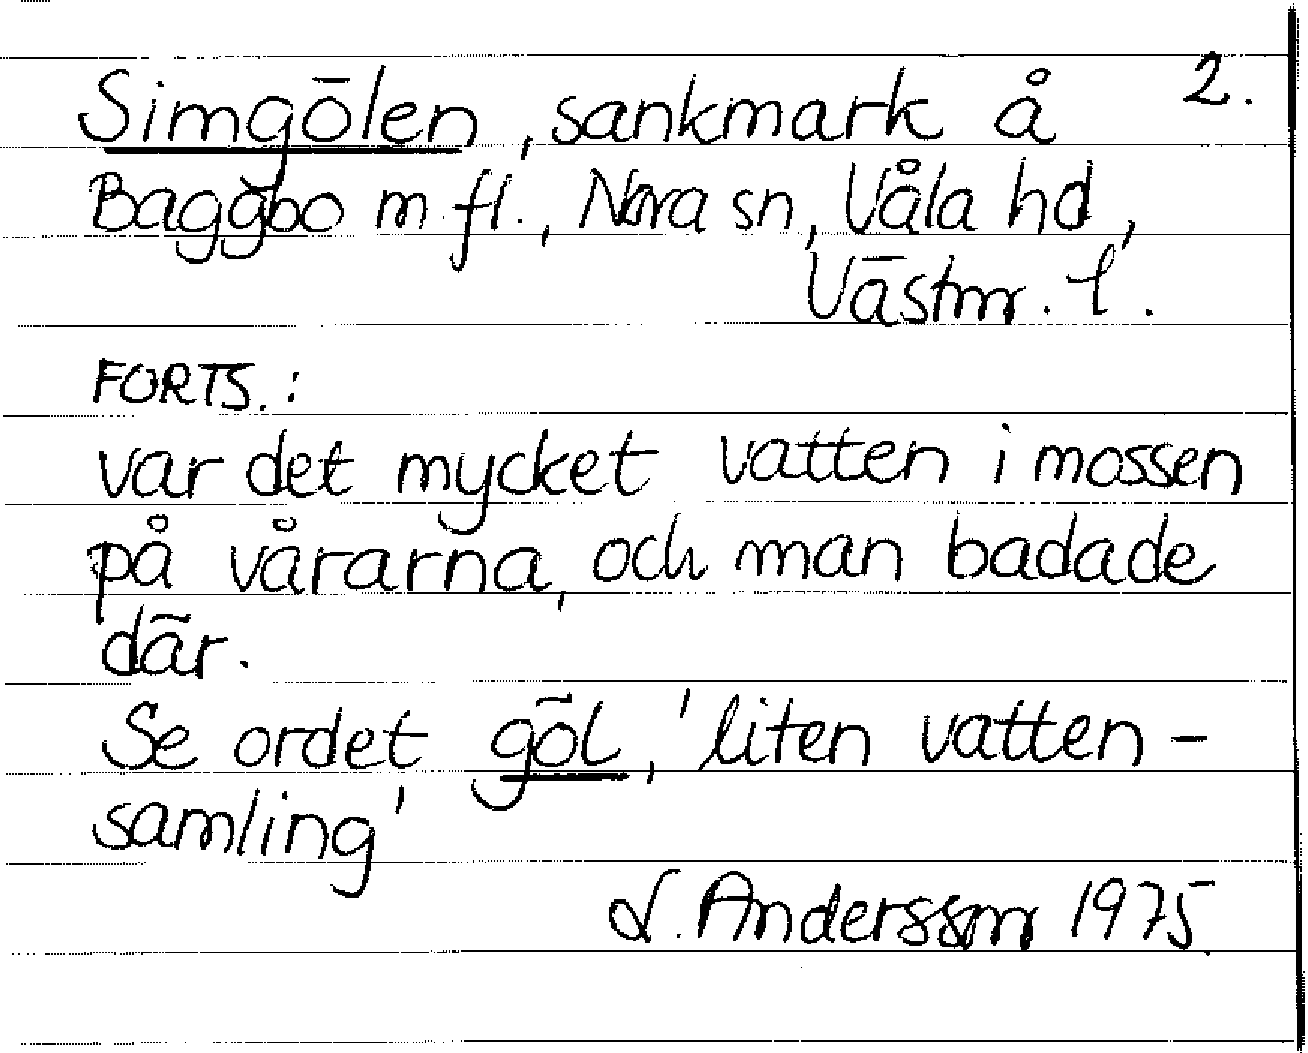 Simgölen, sankmark å 2.
Baggbo m.fl., Nora sn, Våla hd,
Västmr. l.
FORTS.:
var det mycket vatten i mossen
på vårarna, och man badade
där.
Se ordet göl, 'liten vatten-
samling'
L. Andersson 1975.